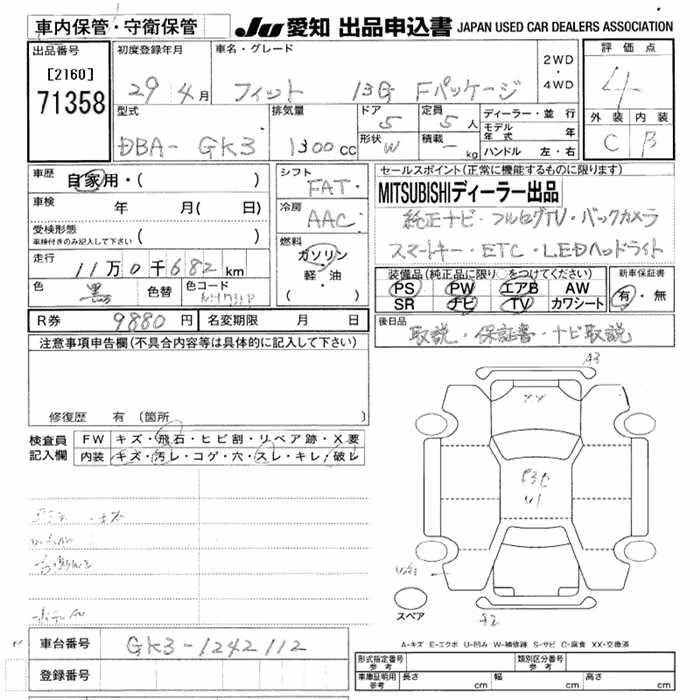 車内保管・守衛保管
JU 愛知 出品申込書 JAPAN USED CAR DEALERS ASSOCIATION
出品番号 初度登録年月 車名・グレード 2WD・4WD 評価点
[2160]
71358
29年 4月 フィット 13G Fパッケージ 4
外装 内装
C B
型式 排気量 ドア 定員 ディーラー・並行
DBA- GK3 1300cc 5 5人 モデル年式 年
形状 W 積載 - kg ハンドル 左・右
車歴 自家用・( ) シフト FAT
セールスポイント(正常に機能するものに限ります)
MITSUBISHIディーラー出品
車検 年 月(日) 冷房 AAC
純正ナビ・フルセグTV・バックカメラ
受検形態 ( )
車検付きのみ記入して下さい
スマートキー・ETC・LEDヘッドライト
燃料 ガソリン・軽・油 ( )
走行 11万0千682km
装備品(純正品に限り○をつけてください) 新車保証書
PS PW エアB AW 有・無
SR ナビ TV カワシート
色 黒 色替 色コード
R券 9880円 名変期限 月 日
後日品 取説・保証書・ナビ取説
注意事項申告欄(不具合内容等は具体的に記入して下さい)
A3
修復歴 有(箇所 )
検査員記入欄 FW キズ・飛石・ヒビ割・リペア跡・X要
内装 キズ・汚レ・コゲ・穴・スレ・キレ・破レ
U1
スペア
車台番号 GK3-1242112
A-キズ E-エクボ U-凹み W-補修跡 S-サビ C-腐食 XX-交換済
登録番号
形式指定番号参考 類別区分番号参考
車庫証明用参考 長さ cm 幅 cm 高さ cm